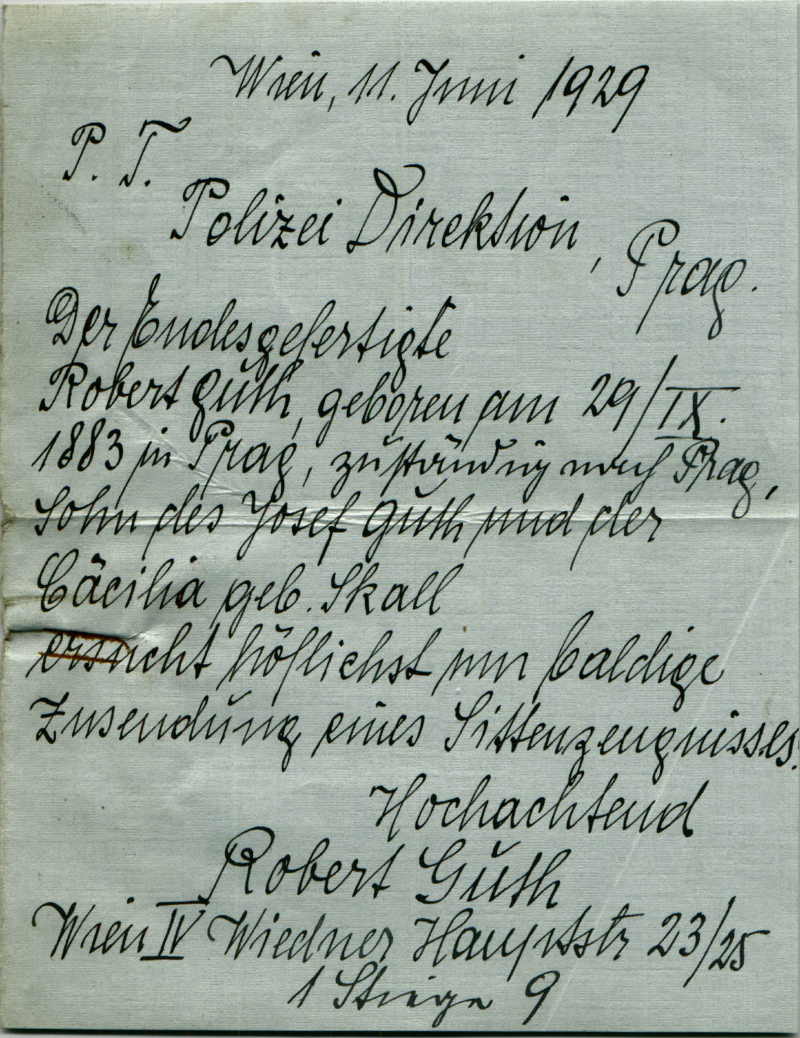 Wien, 11. Juni 1929
P. T.
Polizei Direktion, Prag.
Der Endesgefertigte
Robert Guth, geboren am 29/IX.
1883 in Prag, zuständig nach Prag,
Sohn des Josef Guth und der
Cäcilia geb. Skall
ersucht höflichst um baldige
Zusendung eines Sittenzeugnisses.
Hochachtend
Robert Guth
Wien IV Wiedner Hauptstr 23/25
1 Stiege 9